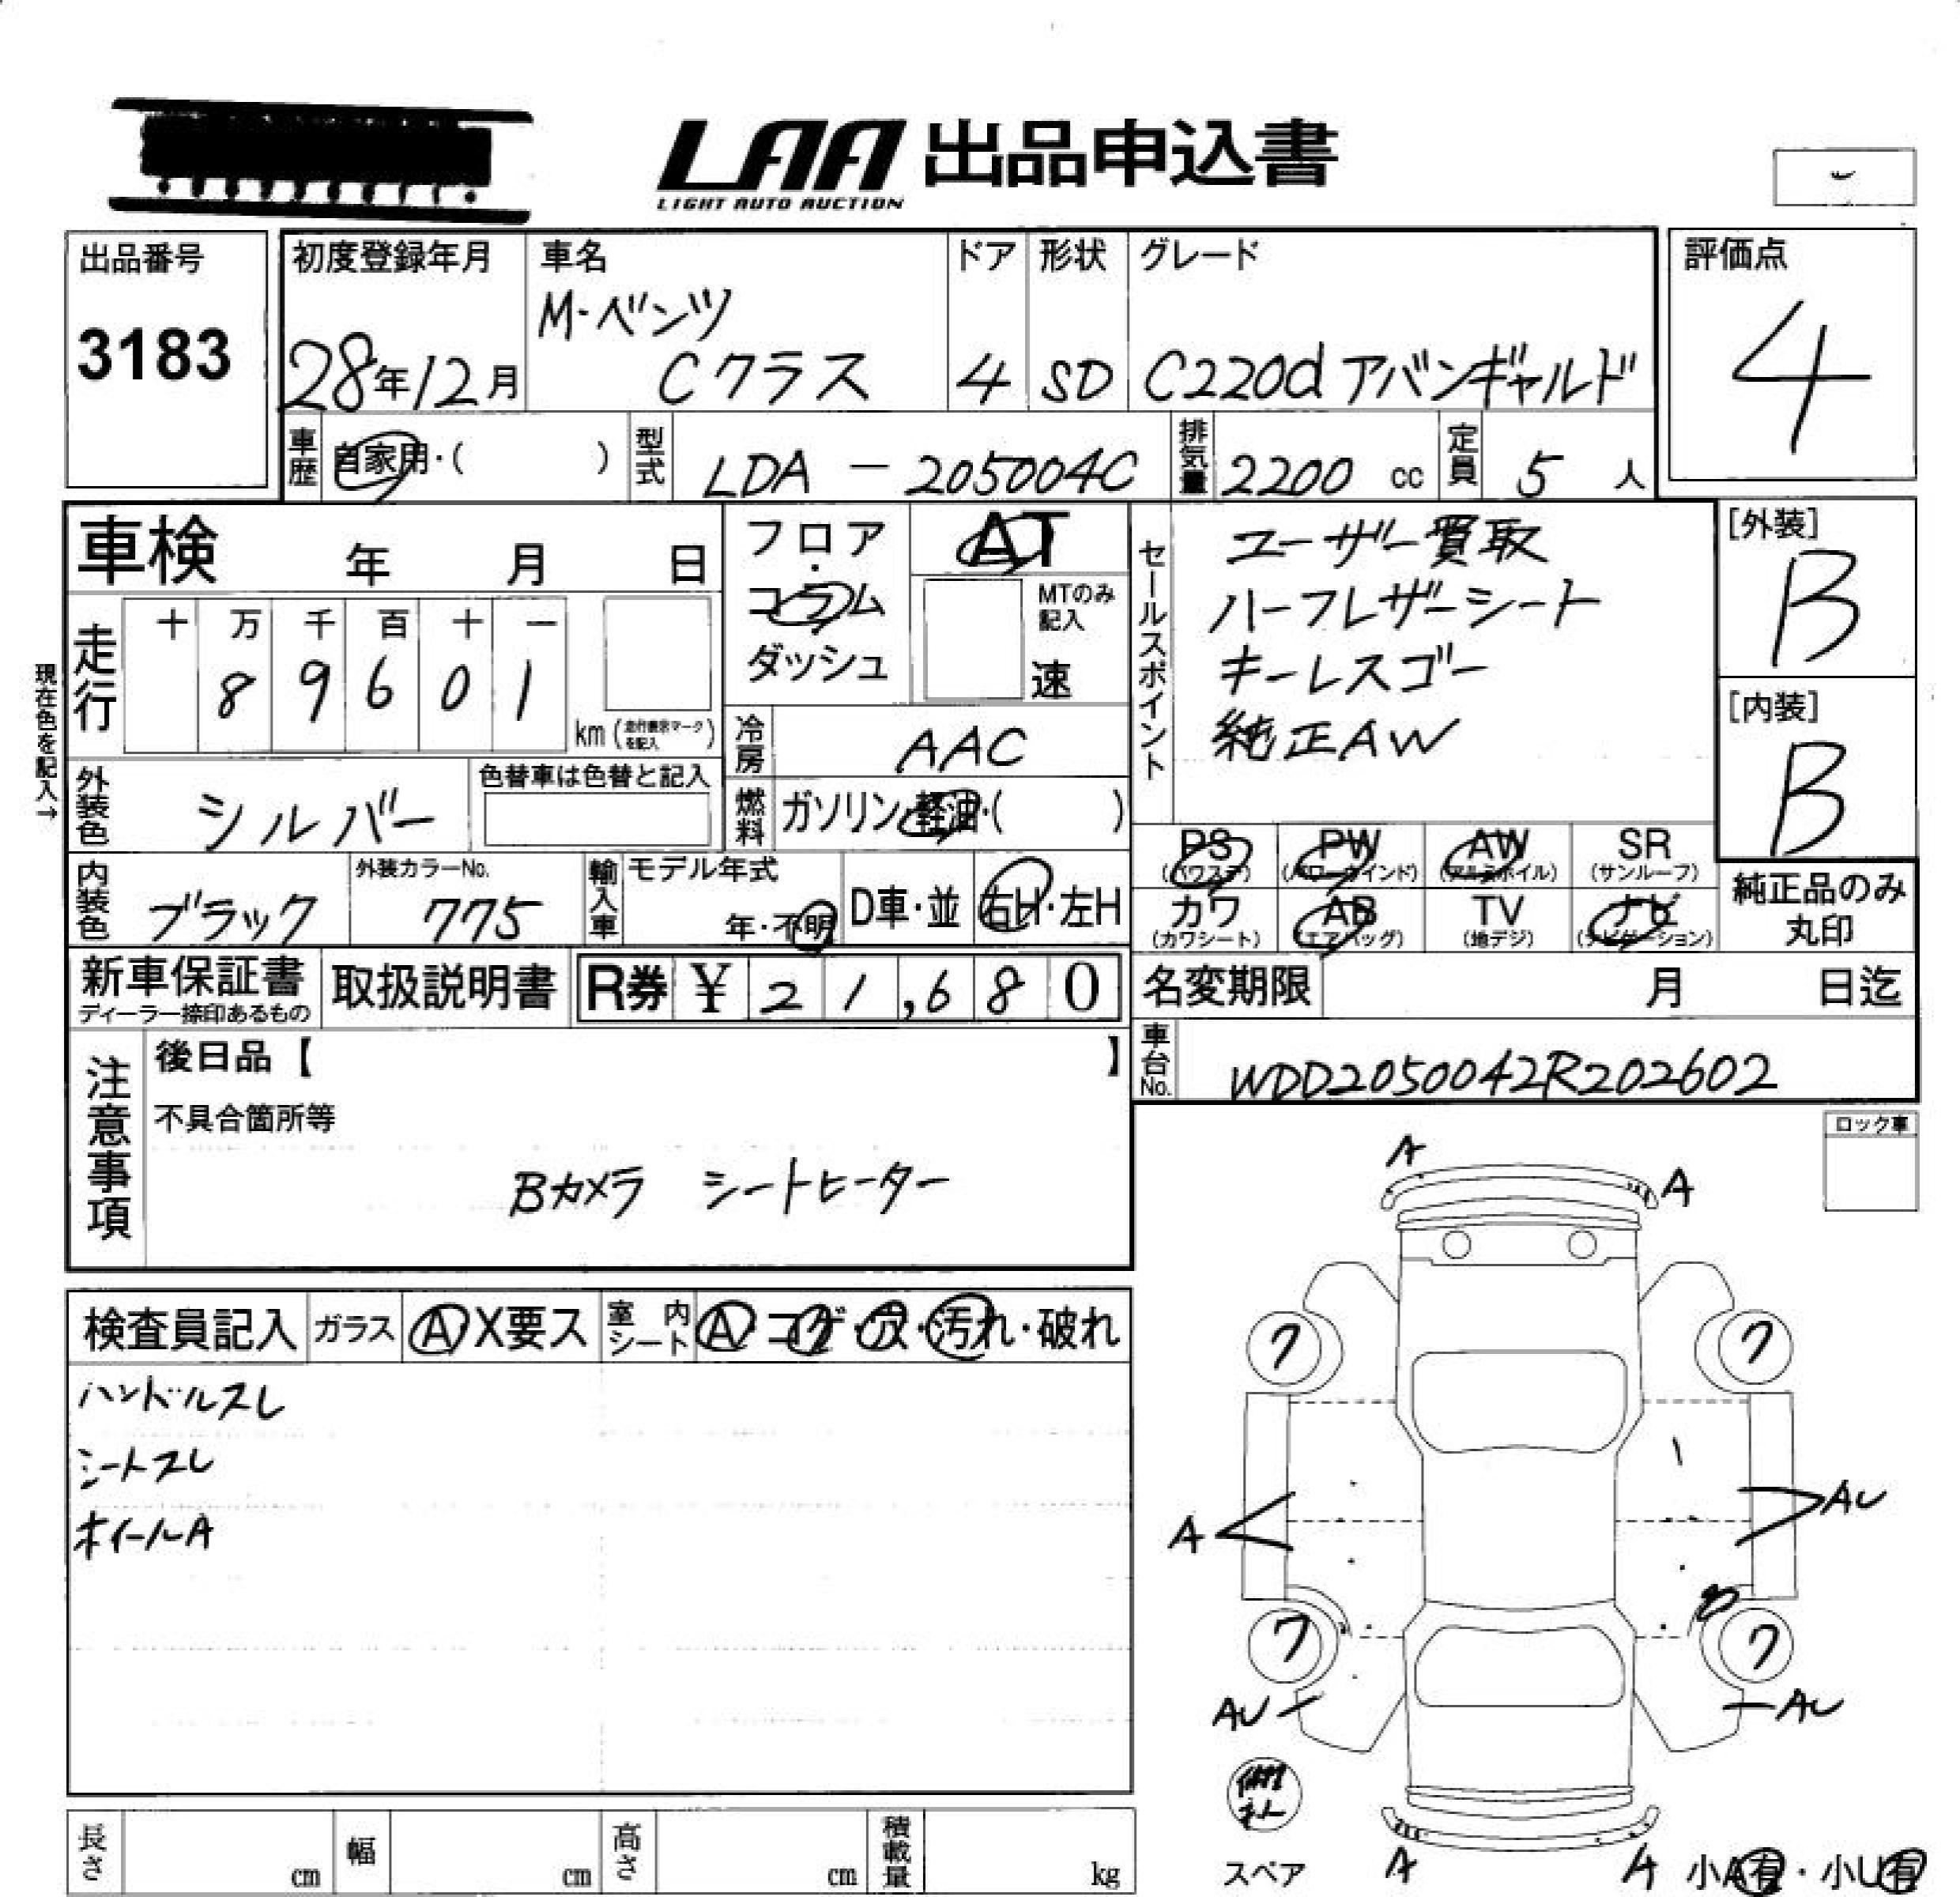 LAA 出品申込書
LIGHT AUTO AUCTION
出品番号
3183
初度登録年月
28年12月
車名
M・ベンツ
Cクラス
ドア
4
形状
SD
グレード
C220d アバンギャルド
評価点
4
車歴
自家用・( )
型式
LDA - 205004C
排気量
2200 cc
定員
5 人
車検 年 月 日
フロア・
コラム
ダッシュ
AT
MTのみ
記入
速
セールスポイント
ユーザー買取
ハーフレザーシート
キーレスゴー
純正AW
[外装]
B
[内装]
B
現在色を記入→
走行
十 万 千 百 十 一
8 9 6 0 1
km (走行表示マークを記入)
冷房
AAC
外装色
シルバー
色替車は色替と記入
燃料
ガソリン・軽油・( )
PS
(パワステ)
PW
(パワーウインド)
AW
(アルミホイル)
SR
(サンルーフ)
内装色
ブラック
外装カラーNo.
775
輸入車
モデル年式
年・不明
D車・並
右H・左H
カワ
(カワシート)
AB
(エアバッグ)
TV
(地デジ)
ナビ
(ナビゲーション)
純正品のみ
丸印
新車保証書
ディーラー捺印あるもの
取扱説明書
R券 ¥ 21,680
名変期限 月 日迄
車台No.
WDD2050042R202602
注意事項
後日品【 】
不具合箇所等
Bカメラ シートヒーター
ロック車
検査員記入
ガラス
A X要ス
室内シート
A・コゲ・穴・汚れ・破れ
ハンドルスレ
シートスレ
ホイールA
A
A
7
7
A
AU
7
7
AU
AU
スペア
A
A
小A有・小U有
長さ cm
幅 cm
高さ cm
積載量 kg